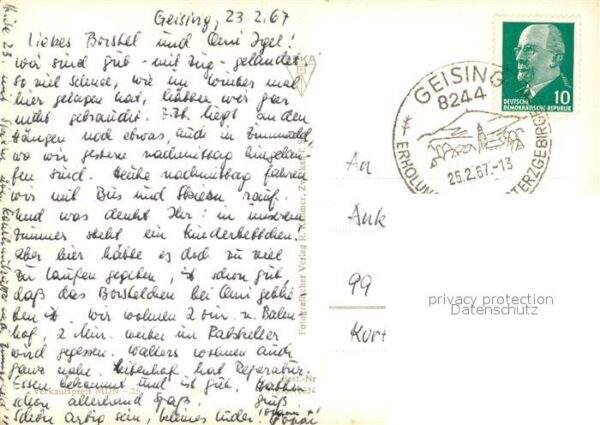 Geising, 23.2.67
Liebes Borstel und Omi Igel!
wir sind gut - mit Zug - gelandet
so viel Schnee, wie im Winter mal
hier gelegen hat, hätten wir gar
nicht gebraucht. Z.Zt. liegt an den
Hängen noch etwas, auch in Zinnwald,
wo wir gestern nachmittag hingelau-
fen sind. Heute nachmittag fahren
wir mit Bus und Skiern rauf.
Und was denkt Ihr: in unserem
Zimmer steht ein Kinderbettchen.
Aber hier hätte es doch zu viel
zu laufen gegeben, ist schon gut,
daß das Borstelchen bei Omi geblie-
ben ist. Wir wohnen 2 Min. v. Bahn-
hof, 2 Min. weiter im Ratskeller
wird gegessen. Walters wohnen auch
ganz nahe. hat Reparatur.
Essen bekommt und ist gut. Hatten
schon allerhand Spaß. Gruß
Schön artig sein, kleines Luder!
Verkaufspreis MDN -.25
Best.-Nr.
Fotografischer Verlag R. Kämmer,
GEISING
8244
25.2.67.-13
DEUTSCHE
DEMOKRATISCHE REPUBLIK
10
An
Ank
99
privacy protection
Datenschutz